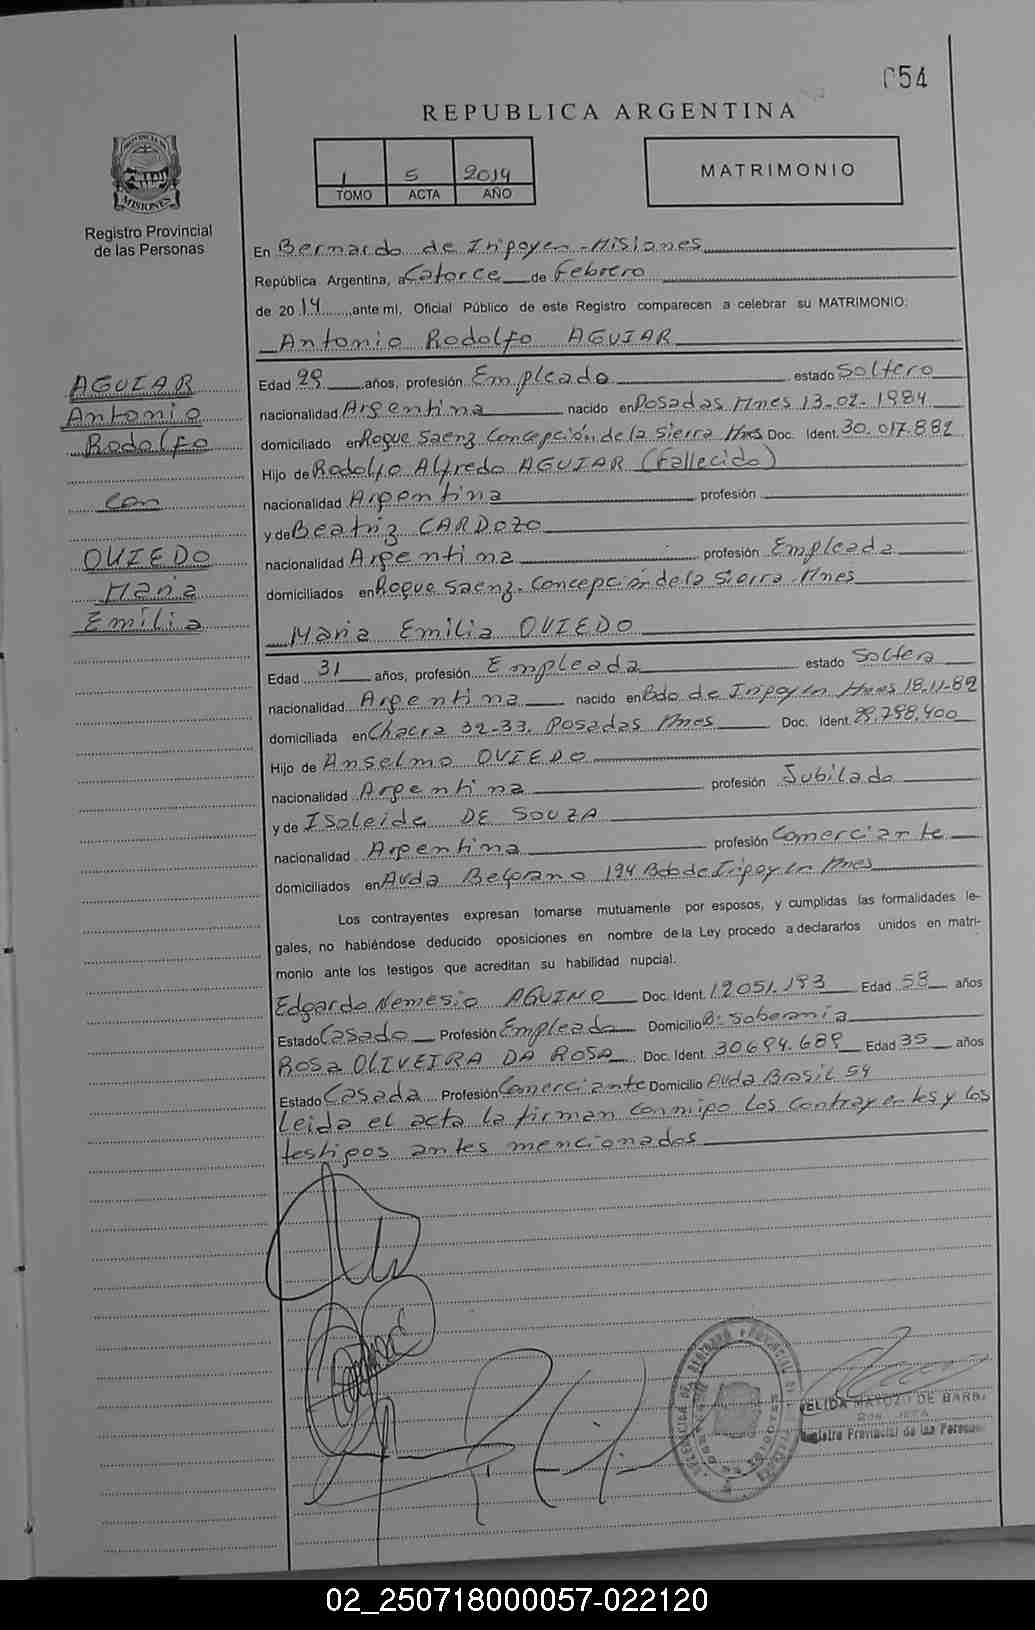 054
REPUBLICA ARGENTINA
1 5 2014
TOMO ACTA AÑO
MATRIMONIO
MISIONES
Registro Provincial
de las Personas
En Bernardo de Iripoyen - Misiones
República Argentina, a Catorce de Febrero
de 2014, ante mi, Oficial Público de este Registro comparecen a celebrar su MATRIMONIO:
Antonio Rodolfo AGUIAR
AGUIAR
Antonio
Rodolfo
con
OVIEDO
Maria
Emilia
Edad 29 años, profesión Empleado estado Soltero
nacionalidad Argentina nacido en Posadas Mnes 13-02-1984
domiciliado en Roque Saenz Concepción de la Sierra Mnes Doc. Ident. 30.017.882
Hijo de Rodolfo Alfredo AGUIAR (Fallecido)
nacionalidad Argentina profesión
y de Beatriz CARDOZO
nacionalidad Argentina profesión Empleada
domiciliados en Roque Saenz. Concepción de la Sierra Mnes
Maria Emilia OVIEDO
Edad 31 años, profesión Empleada estado Soltera
nacionalidad Argentina nacido en Bdo de Iripoyen Mnes 18-11-82
domiciliada en Chacra 32-33. Posadas Mnes Doc. Ident. 29.798.400
Hijo de Anselmo OVIEDO
nacionalidad Argentina profesión Jubilado
y de ISoleide DE SOUZA
nacionalidad Argentina profesión Comerciante
domiciliados en Avda Belgrano 194 Bdo de Iripoyen Mnes
Los contrayentes expresan tomarse mutuamente por esposos, y cumplidas las formalidades le-
gales, no habiéndose deducido oposiciones en nombre de la Ley procedo a declararlos unidos en matri-
monio ante los testigos que acreditan su habilidad nupcial.
Edgardo Nemesio AQUINO Doc. Ident. 12051.193 Edad 58 años
Estado Casado Profesión Empleado Domicilio B: Soberania
Rosa OLIVEIRA DA ROSA Doc. Ident. 30694.689 Edad 35 años
Estado Casada Profesión Comerciante Domicilio Avda Brasil 54
Leida el acta la firman conmipo los contrayentes y los
testipos antes mencionados
DE BARB
Registro Provincial de las Personas
02_250718000057-022120